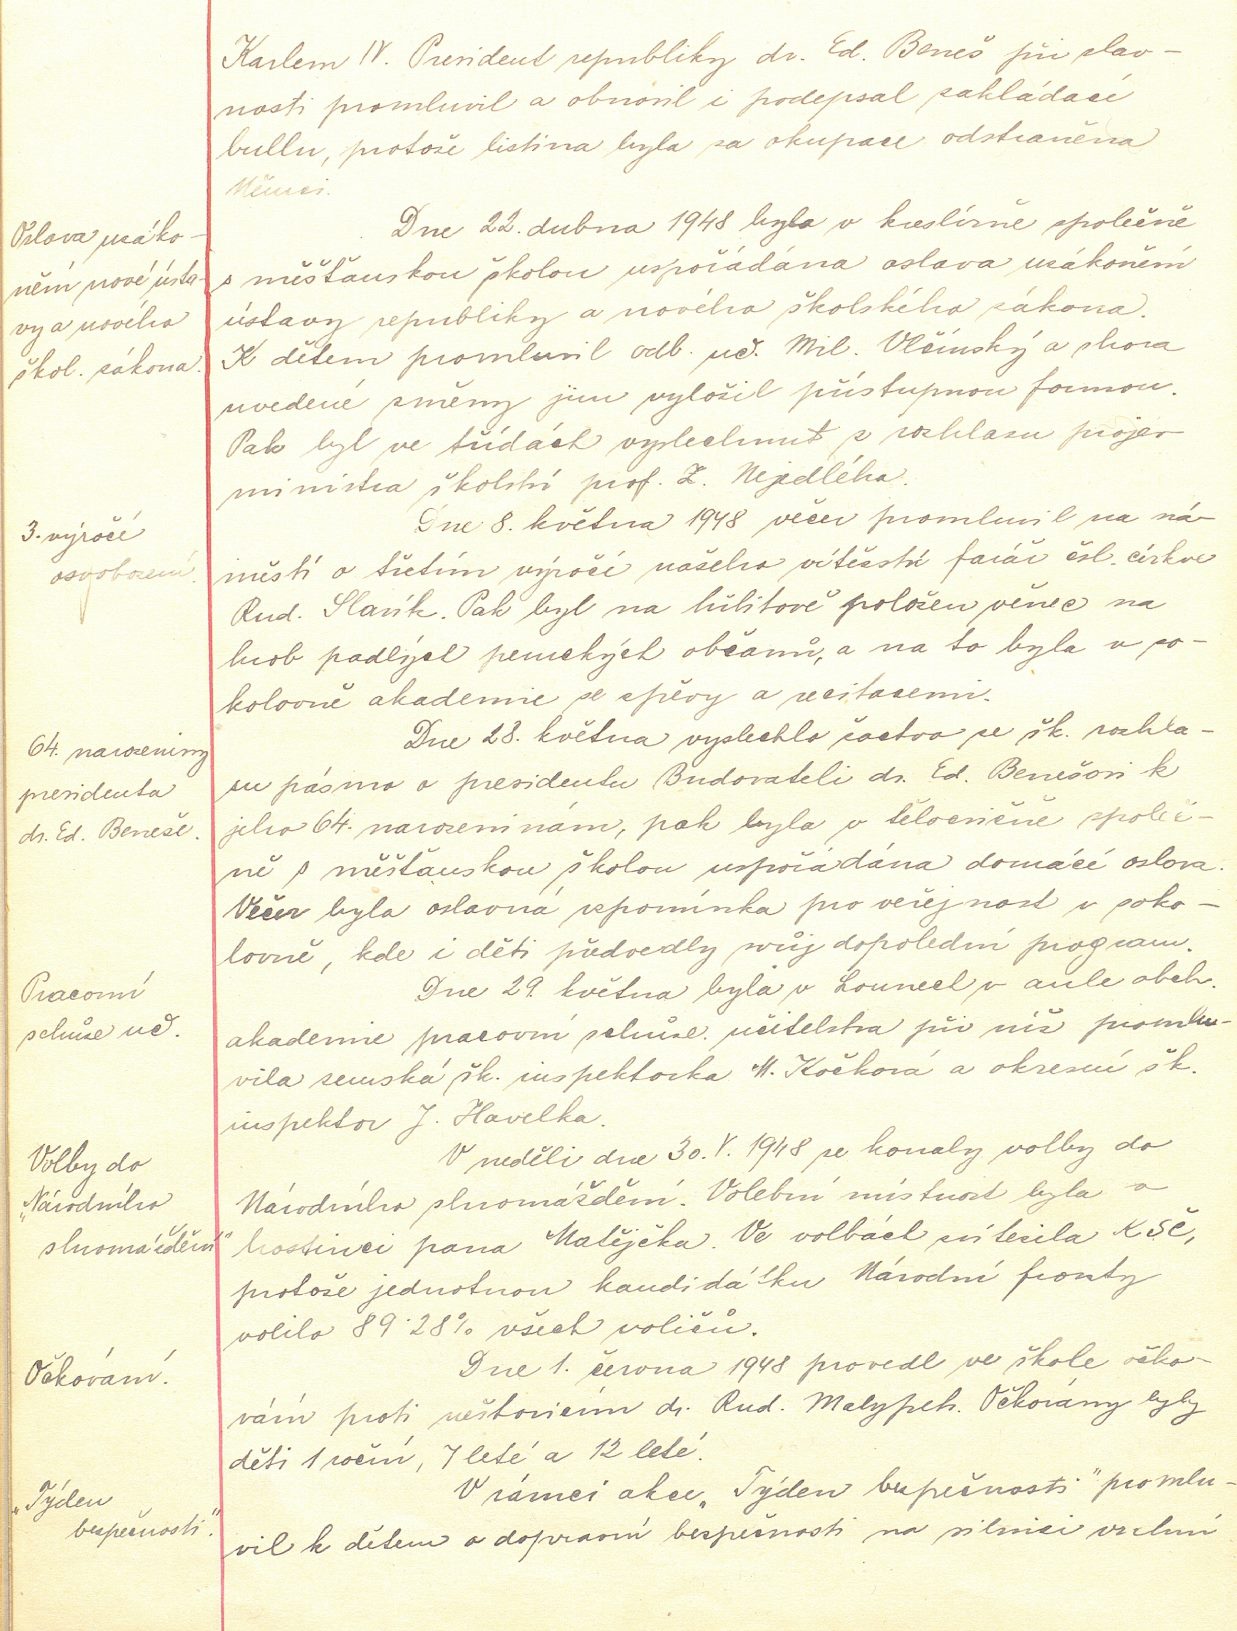 Karlem IV. President republiky dr. Ed. Beneš při slav-
nosti promluvil a obnovil i podepsal zakládací
bullu, protože listina byla za okupace odstraněna
Němci.
Oslava uzáko-
nění nové ústa-
vy a nového
škol. zákona.
Dne 22. dubna 1948 byla v kreslírně společně
s měšťanskou školou uspořádána oslava uzákonění
ústavy republiky a nového školského zákona.
K dětem promluvil odb. uč. Mil. Vlčinský a shora
uvedené změny jim vyložil přístupnou formou.
Pak byl ve třídách vyslechnut z rozhlasu projev
ministra školství prof. Z. Nejedlého.
3. výročí
osvobození.
Dne 8. května 1948 večer promluvil na ná-
městí o třetím výročí našeho vítězství farář čsl. církve
Rud. Slavík. Pak byl na hřbitově položen věnec na
hrob padlých zemských občanů, a na to byla v so-
kolovně akademie se zpěvy a recitacemi.
64. narozeniny
presidenta
dr. Ed. Beneše.
Dne 28. května vyslechlo žactvo ze šk. rozhla-
su pásmo o presidentu Budovateli dr. Ed. Benešovi k
jeho 64. narozeninám, pak byla v tělocvičně společ-
ně s měšťanskou školou uspořádána domácí oslava.
Večer byla oslavná vzpomínka pro veřejnost v soko-
lovně, kde i děti předvedly svůj dopolední program.
Pracovní
schůze uč.
Dne 29. května byla v Lounech v aule obch.
akademie pracovní schůze učitelstva při níž promlu-
vila zemská šk. inspektorka M. Kočková a okresní šk.
inspektor J. Havelka.
Volby do
"Národního
shromáždění"
V neděli dne 30.V. 1948 se konaly volby do
Národního shromáždění. Volební místnost byla v
hostinci pana Matějčka. Ve volbách zvítězila KSČ,
protože jednotnou kandidátku Národní fronty
volilo 89.28% všech voličů.
Očkování.
Dne 1. června 1948 provedl ve škole očko-
vání proti neštovicím dr. Rud. Malypetr. Očkovány byly
děti 1 roční, 7 leté a 12 leté.
"Týden
bezpečnosti".
V rámci akce "Týden bezpečnosti" promlu-
vil k dětem o dopravní bezpečnosti na silnici vrchní